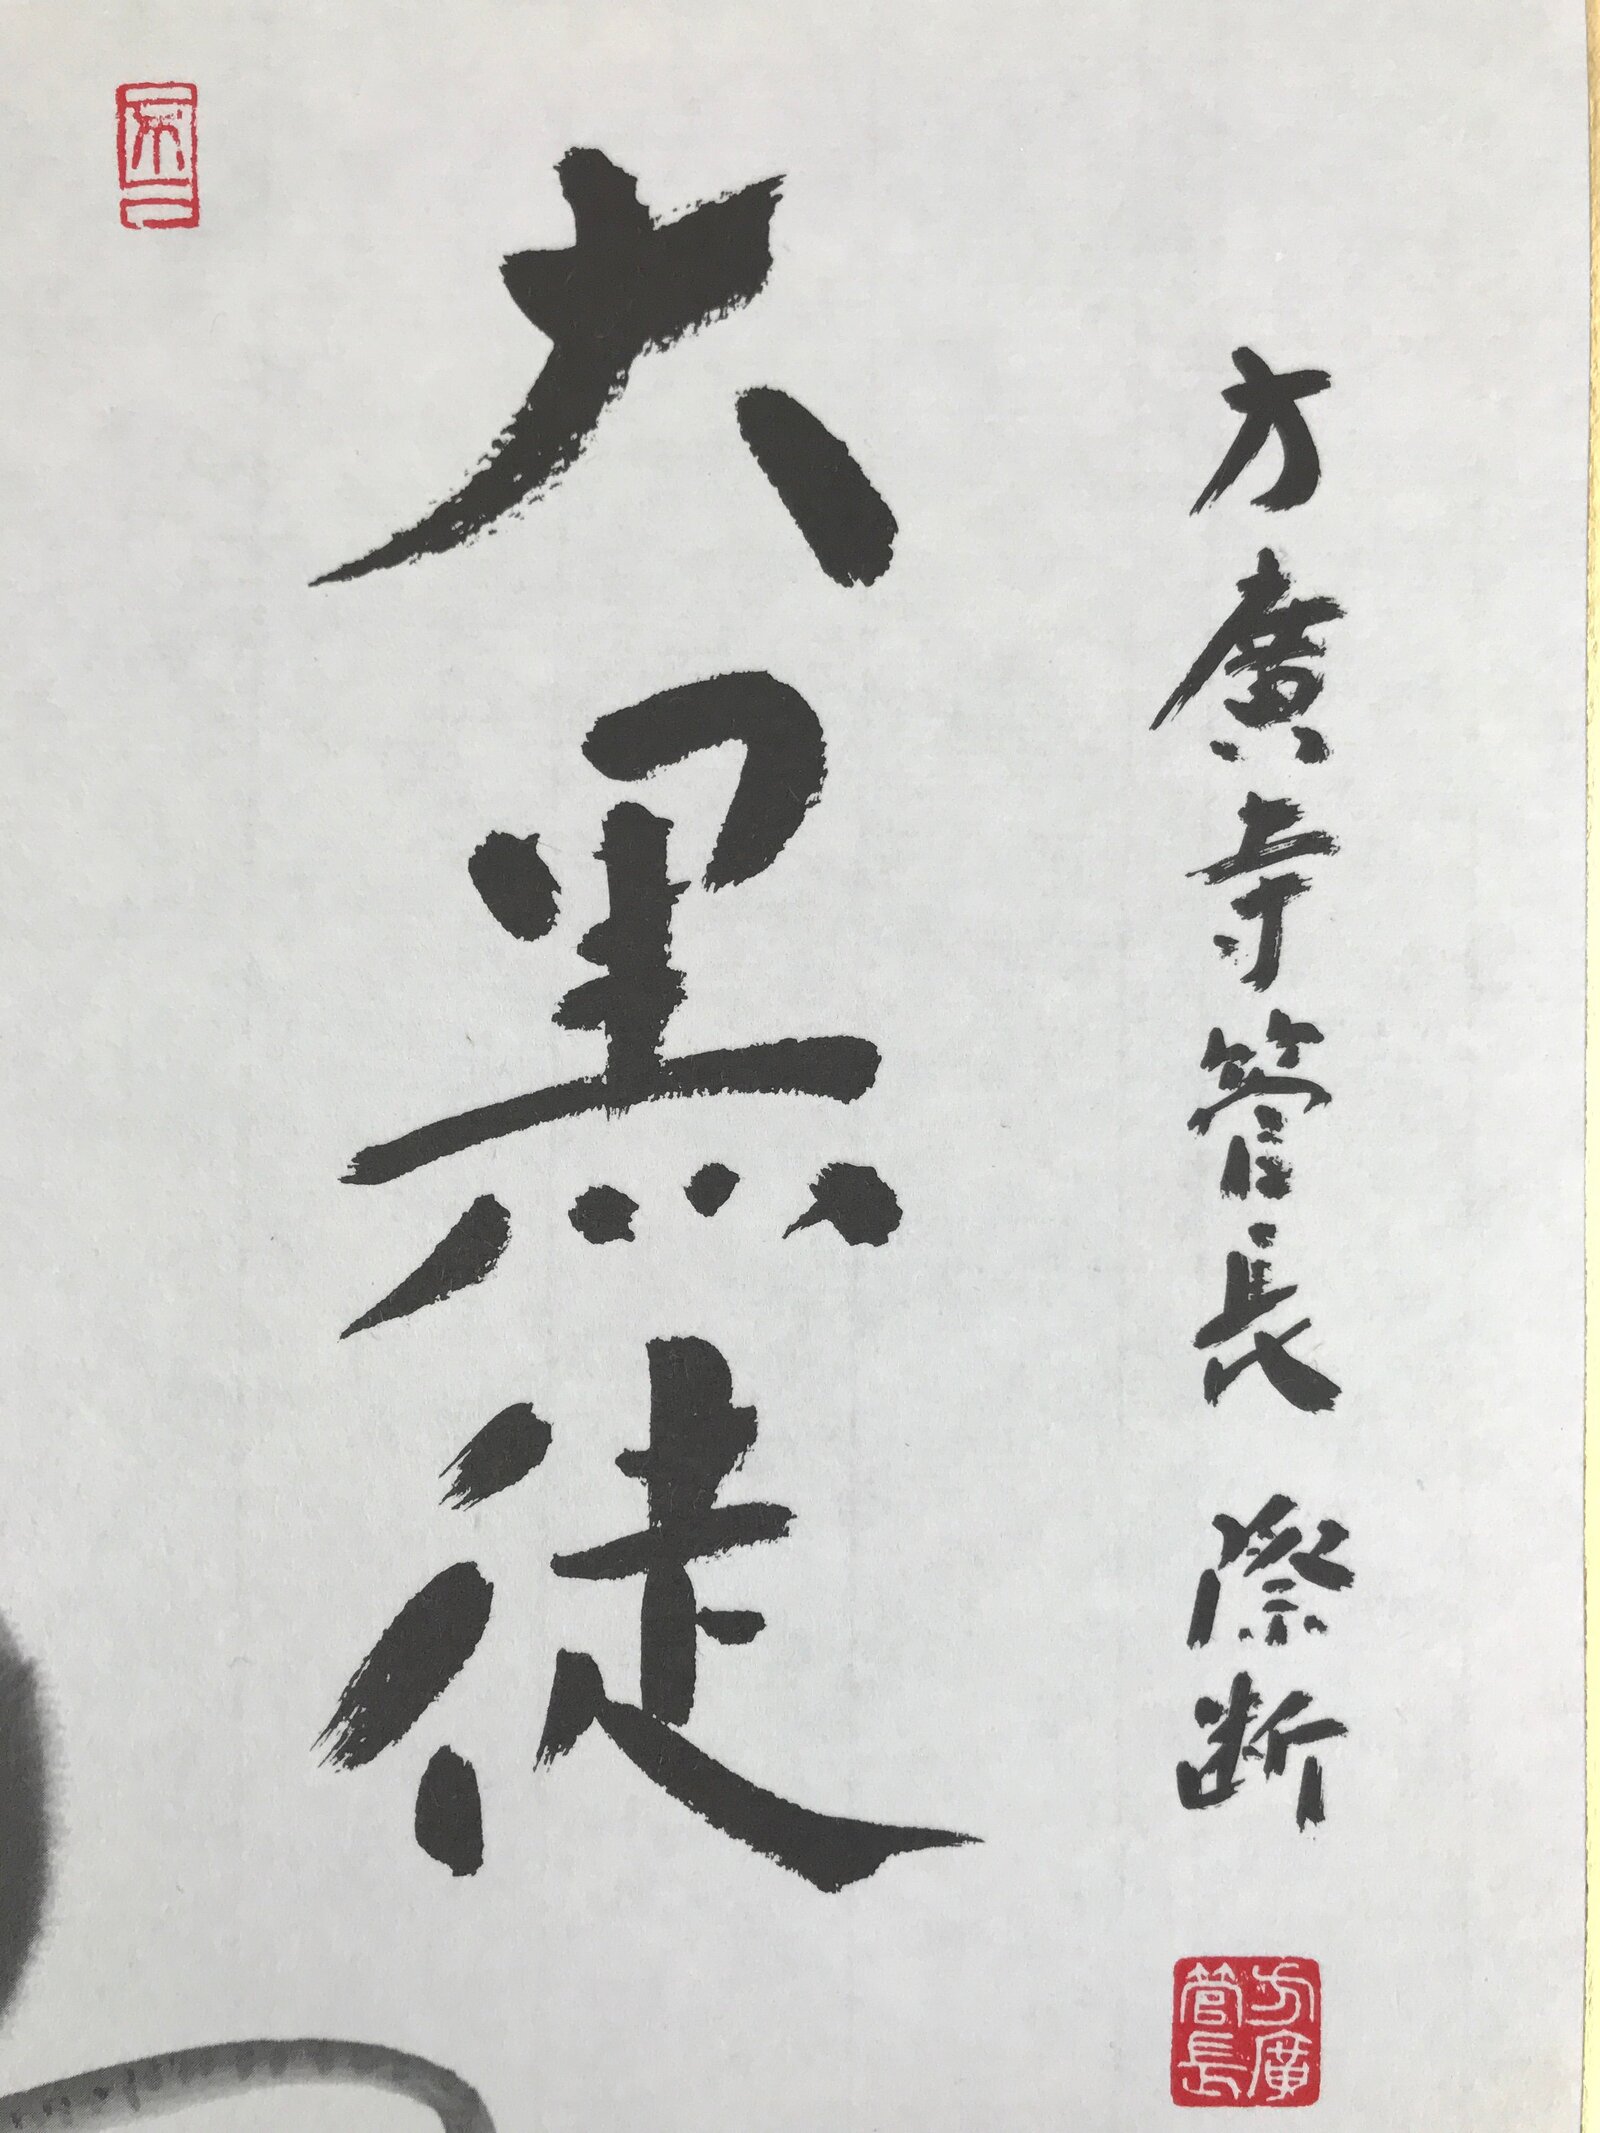 大黒徒
方廣寺管長 際断
方廣
管長